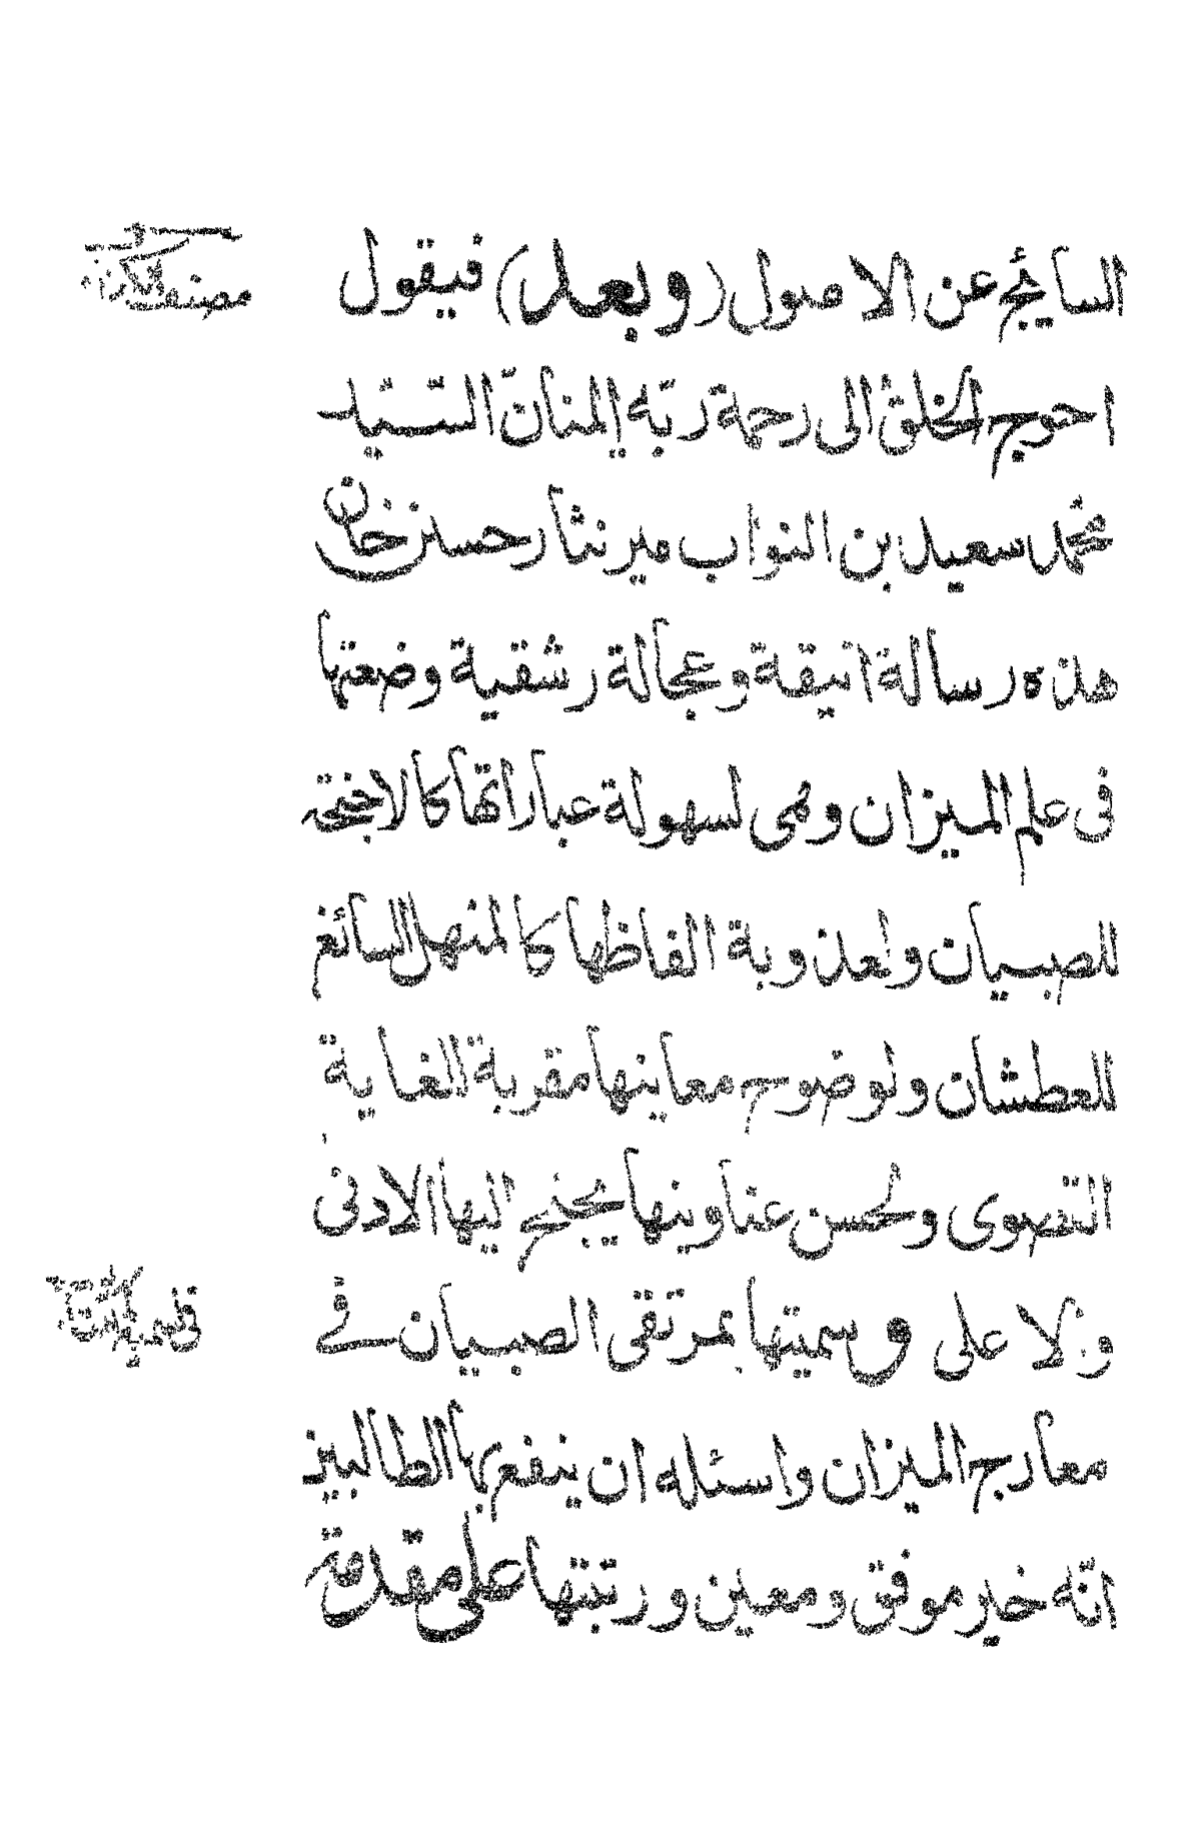 النتائج عن الاصول (وبعد) فيقول
احوج الخلق الى رحمة ربّه المنان السيّد
محمد سعيد بن النواب مير نثار حسين خان
هذه رسالة انيقة وعجالة رشقية وضعتها
فى علم الميزان وهى لسهولة عباراتها كالاجنحة
للصبيان ولعذوبة الفاظها كالمنهل السائغ
للعطشان ولوضوح معاينها مقربة للغاية
القصوى ولحسن عناوينها يجنح اليها الادنى
والاعلى وسميتها بمرتقى الصبيان فے
معارج الميزان واسئله ان ينفع بها الطالبين
انّه خير موفق ومعين ورتبتها على مقدمة